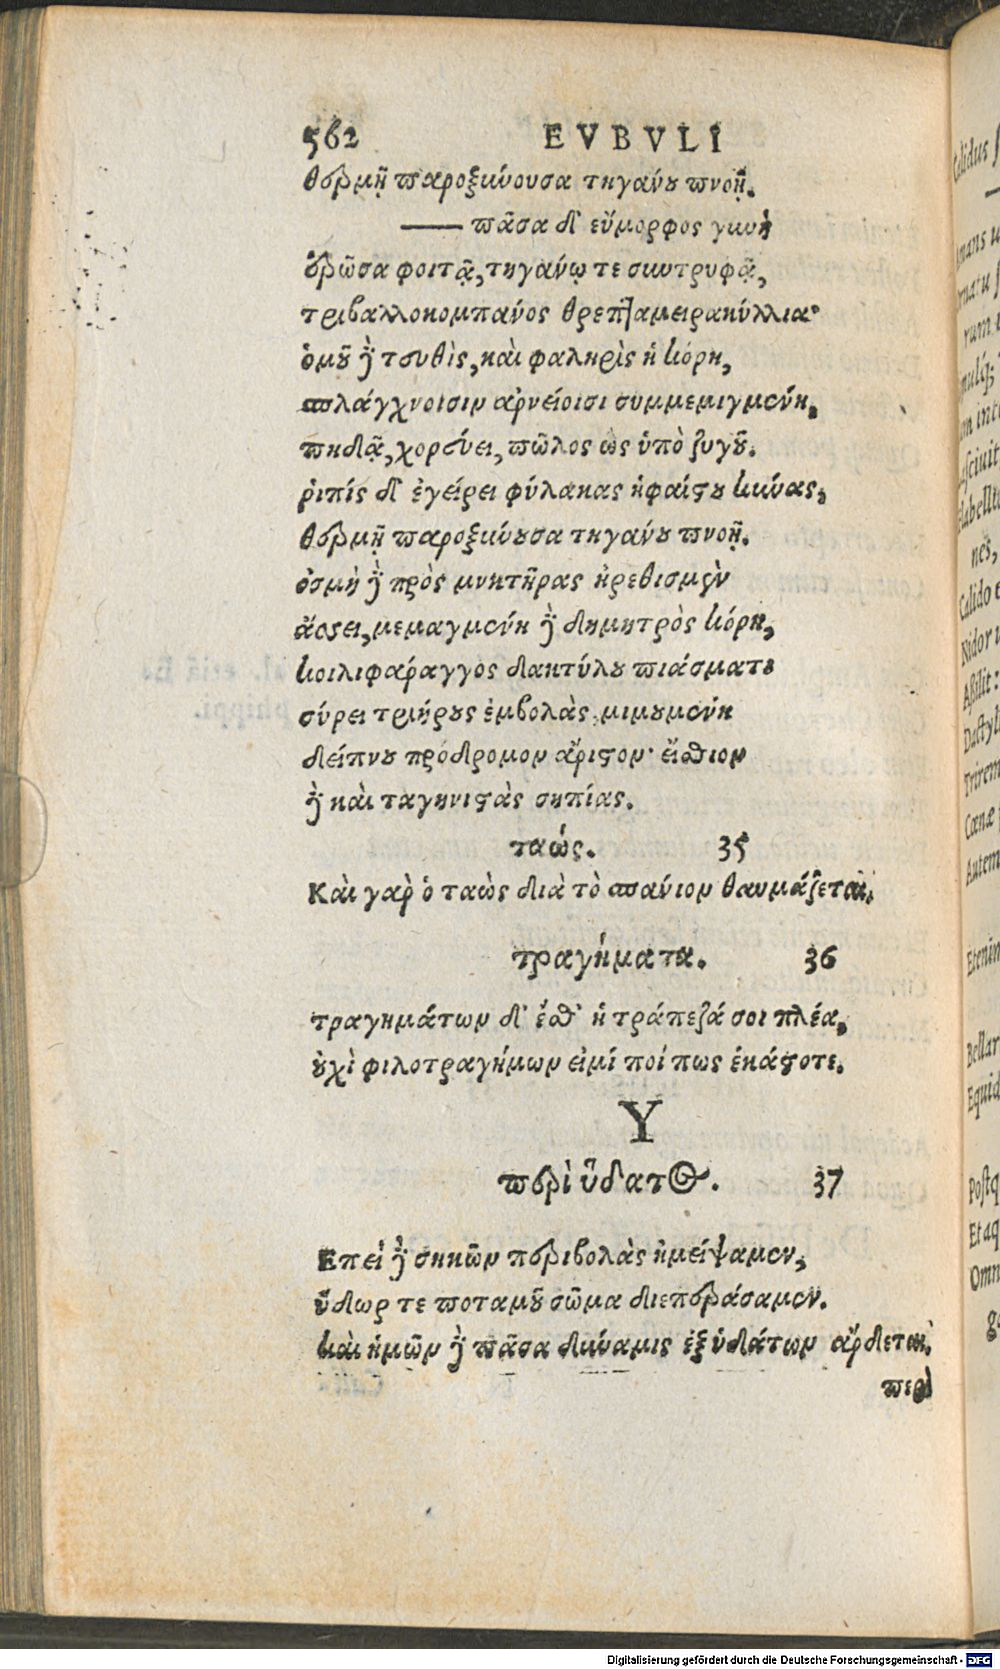 562 EVBVLI
θερμῇ παροξύνουσα τηγάνου πνοῇ.
—— πᾶσα δ' εὔμορφος γυνὴ
ἐρῶσα φοιτᾷ, τηγάνῳ τε συντρυφᾷ,
τριβαλλοποπανόθρεπτα μειρακύλλια·
ὁμοῦ δὲ τευθὶς, καὶ φαληρὶς ἡ κόρη,
σπλάγχνοισιν ἀρνείοισι συμμεμιγμένη,
πηδᾷ, χορεύει, πῶλος ὡς ὑπὸ ζυγοῦ.
ῥιπίς δ' ἐγείρει φύλακας ἡφαίστου κύνας,
θερμῇ παροξύνουσα τηγάνου πνοῇ.
ὀσμὴ δὲ πρὸς μνητῆρας ἠρεθισμὲν
ἄσσει, μεμαγμένη δὲ δημητρὸς κόρη,
κοιλιφάραγγος δακτύλου πιάσματι
σύρει τριήρους ἐμβολὰς μιμουμένη
δείπνου πρόδρομον ἄριστον· εἴσθιον
δὲ καὶ ταγηνιστὰς σηπίας.
ταώς. 35
Καὶ γαρ ὁ ταὼς διὰ τὸ σπάνιον θαυμάζεται.
τραγήματα. 36
τραγημάτων δ' ἔσθ' ἡ τράπεζά σοι πλέα,
οὐχὶ φιλοτραγήμων εἰμί ποί πως ἑκάστοτε.
Υ
περὶ ὕδατος. 37
Επεὶ δὲ σηκῶν περιβολὰς ἠμείψαμεν,
ὕδωρ τε ποταμοῦ σῶμα διεπεράσαμεν.
καὶ ἡμῶν δὲ πᾶσα δύναμις ἐξ ὑδάτων ἄρδεται.
περὶ
Digitalisierung gefördert durch die Deutsche Forschungsgemeinschaft - DFG